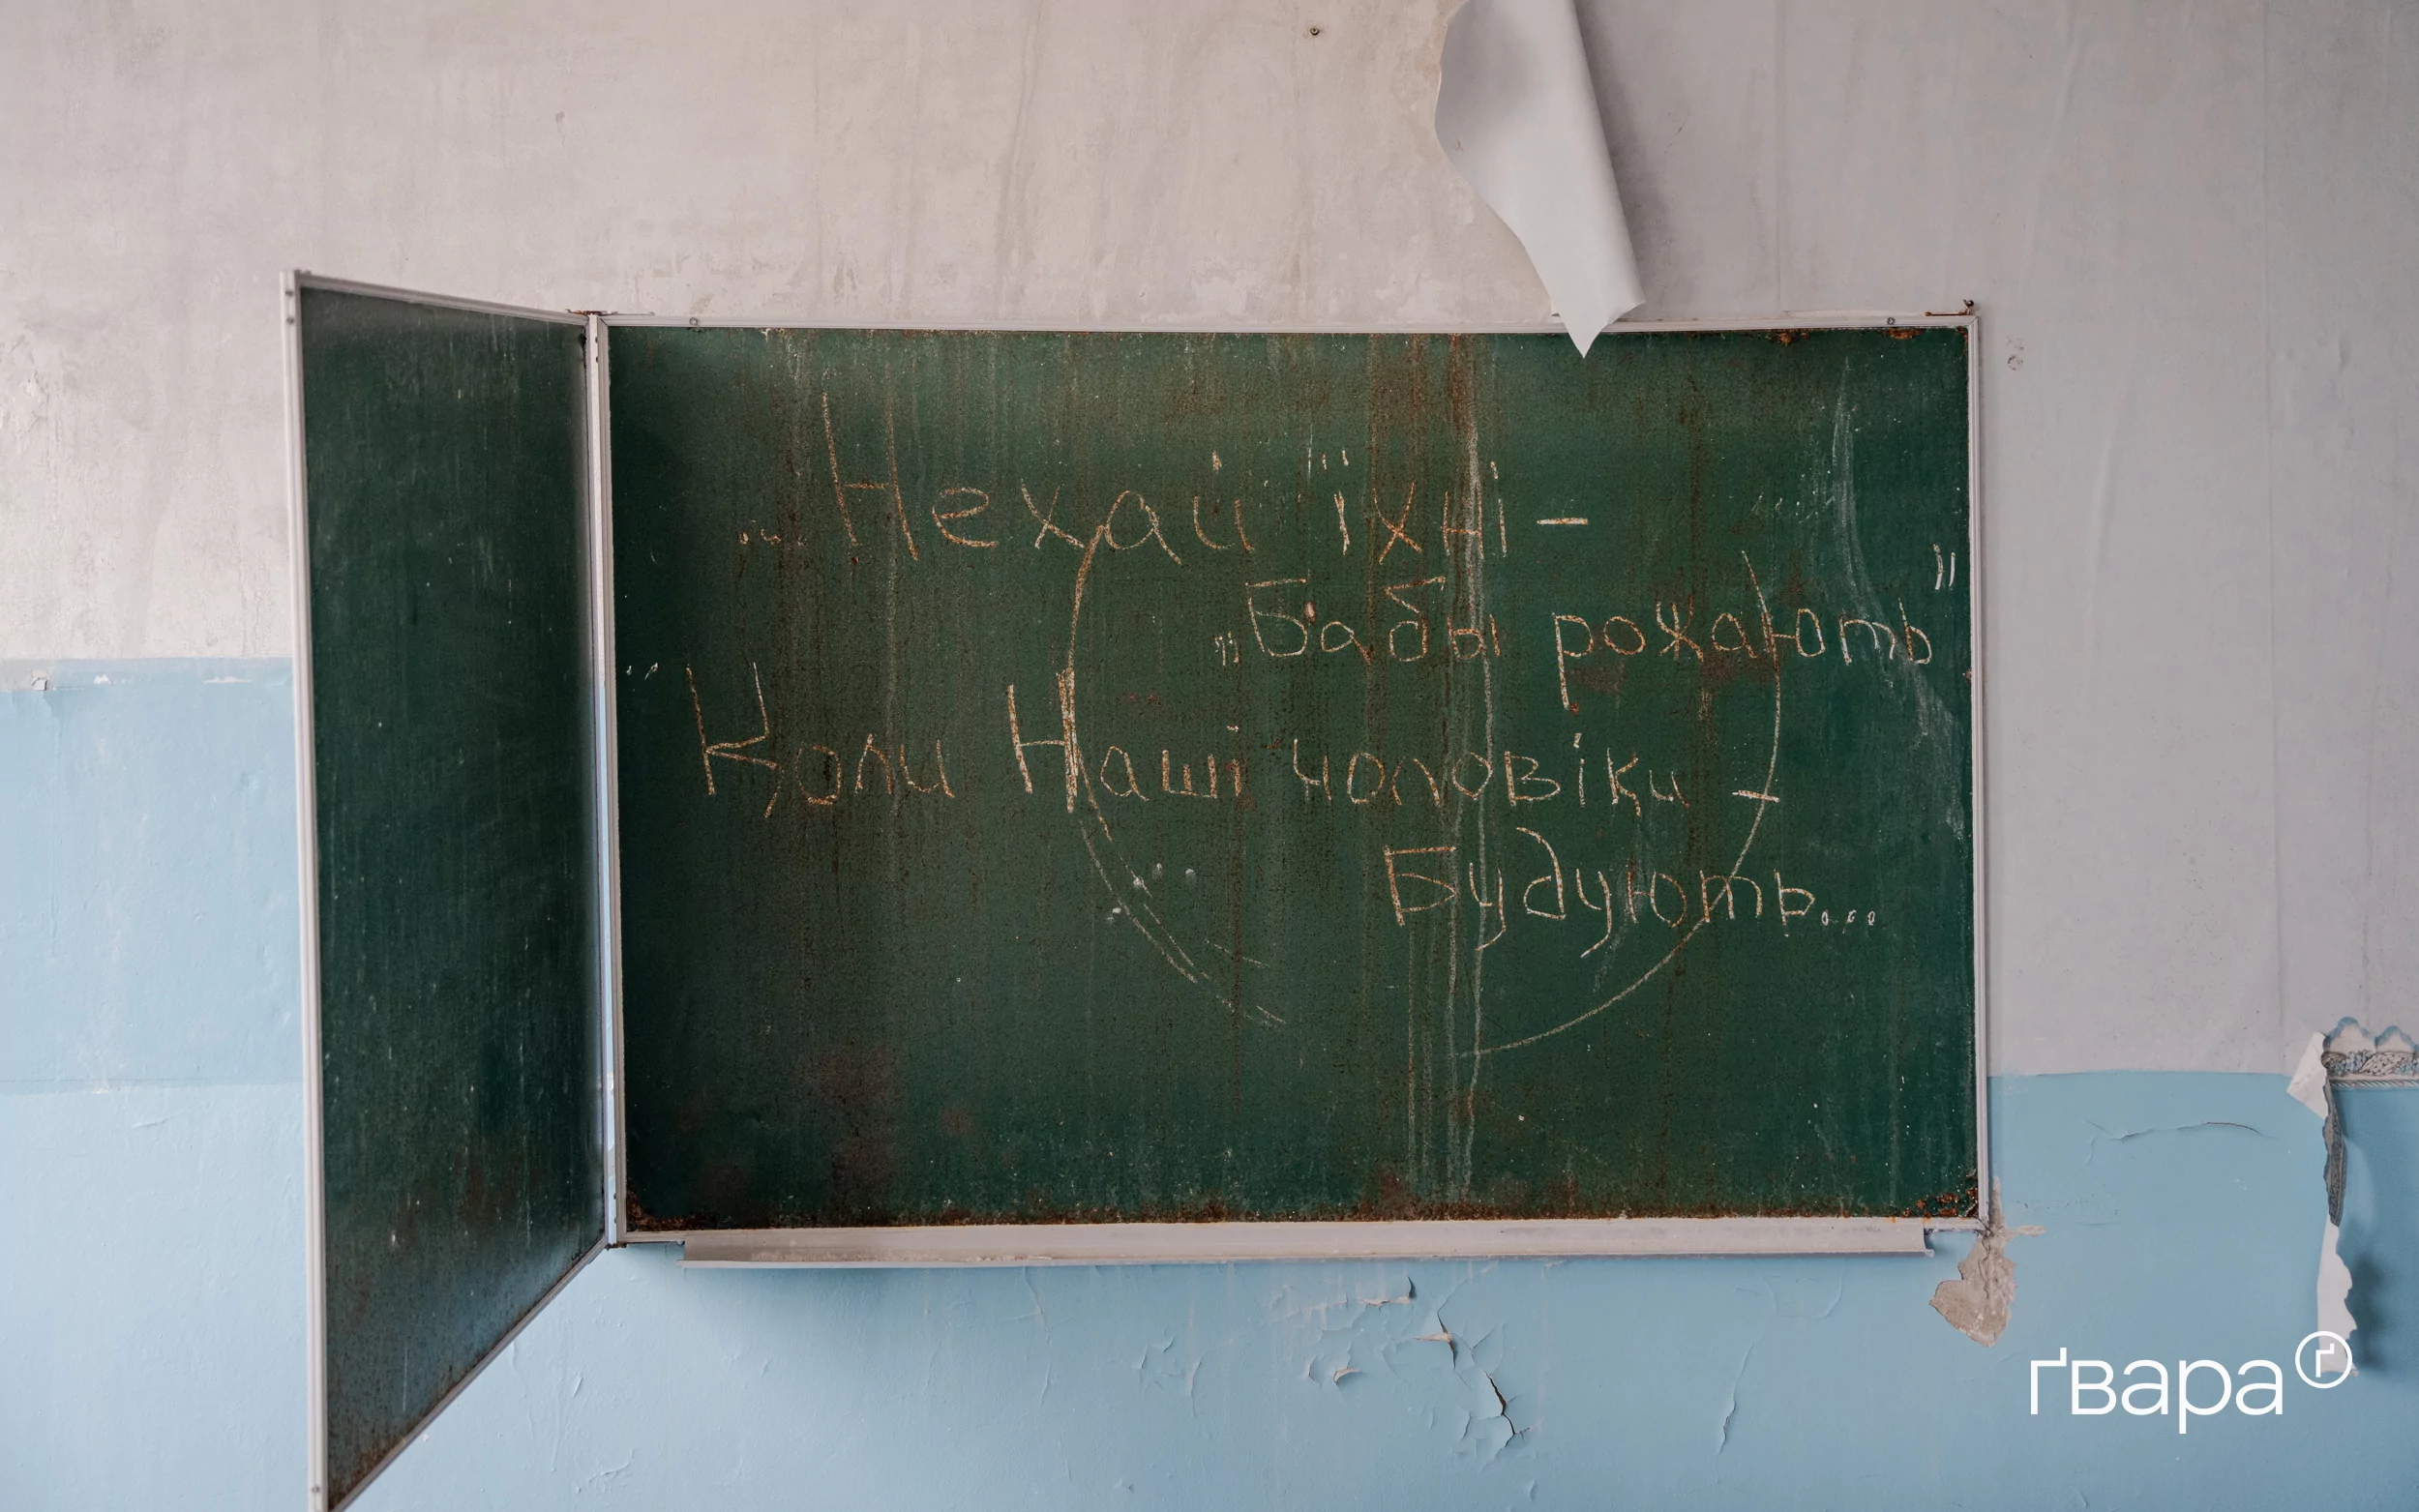 „Нехай їхні –
„Бабы рожають"
"Коли Наші чоловіки –
Будують...
ґвара ґ